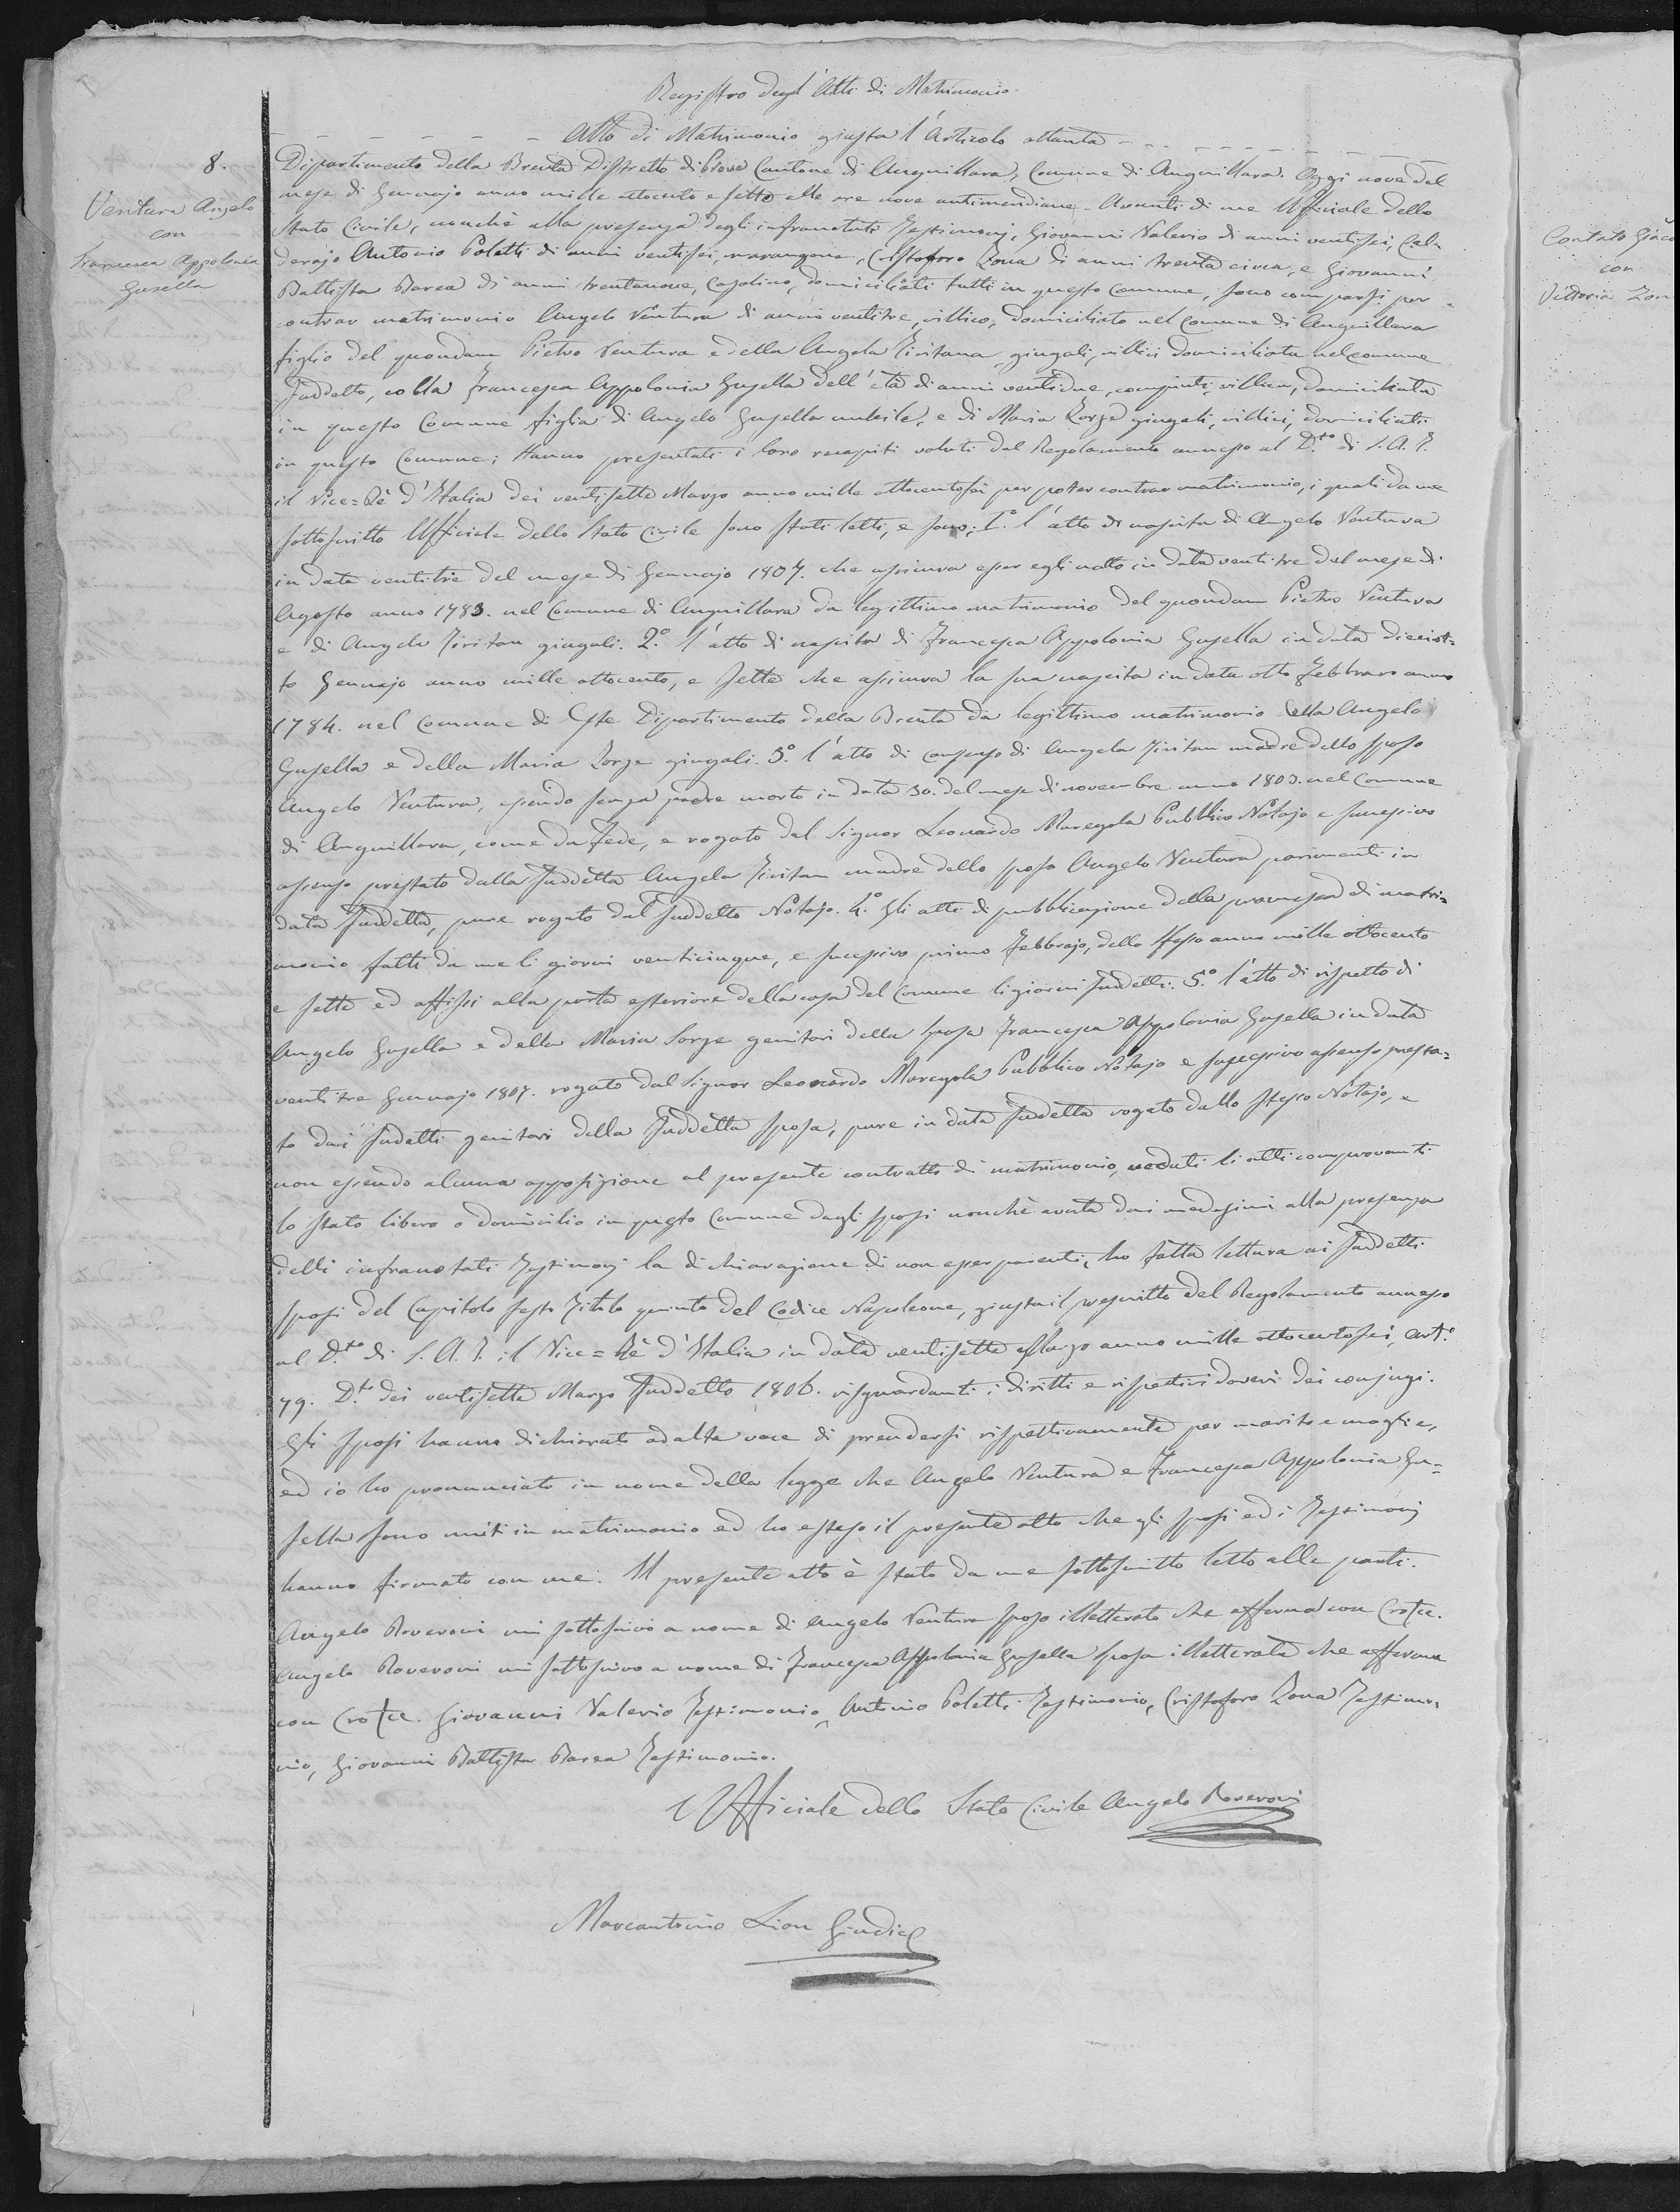 Registro degl'Atti di Matrimonio
Atto di Matrimonio giusta l'Articolo ottanta
8.
Ventura Angelo
con
Francesca Appolonia
Gusella
Dipartimento della Brenta Distretto di Piove Cantone di Anguillara, Comune di Anguillara. Oggi nove del
mese di Gennajo anno mille ottocento e sette alle ore nove antimeridiane. Avanti di me Ufficiale dello
Stato Civile, nonchè alla presenza degli infranotati Testimonj, Giovanni Valerio di anni ventisei, Cal=
derajo Antonio Poletti di anni ventisei, marangone, Cristoforo Zona di anni trenta circa, e Giovanni
Battista Barea di anni trentanove, Casolino, domiciliati tutti in questo Comune, sono comparsi per
contrar matrimonio Angelo Ventura di anni ventitre, villico, domiciliato nel Comune di Anguillara
figlio del quondam Pietro Ventura e della Angela giugali, villici domiciliata nel comune
suddetto, colla Francesca Appolonia Gusella dell'età di anni ventidue, compiuti, villica, domiciliata
in questo Comune figlia di Angelo Gusella e di Maria Zorze giugali, villici, domiciliati
in questo Comune; Hanno presentati i loro recapiti voluti dal Regolamento annesso al D.to di S. A. I.
il Vice=Rè d'Italia dei ventisette Marzo anno mille ottocentosei per poter contrar matrimonio, i quali da me
sottoscritto Ufficiale dello Stato Civile sono stati letti, e sono; 1.° l'atto di nascita di Angelo Ventura
in data ventitre del mese di Gennajo 1807. che assicura esser egli nato in data ventitre del mese di
Agosto anno 1783. nel Comune di Anguillara da legittimo matrimonio del quondam Pietro Ventura
e di Angela giugali. 2.° l'atto di nascita di Francesca Appolonia Gusella in data dieciot=
to Gennajo anno mille ottocento, e sette che assicura la sua nascita in data otto Febbraro anno
1784. nel Comune di Este Dipartimento della Brenta da legittimo matrimonio della Angelo
Gusella e della Maria Zorze giugali. 3.° l'atto di consenso di Angela madre dello sposo
Angelo Ventura, essendo senza padre morto in data 30. del mese di novembre anno 1803. nel Comune
di Anguillara, come da Fede, e rogato dal Signor Leonardo Maregola Pubblico Notajo e sucessivo
assenso prestato dalla suddetta Angela madre dello sposo Angelo Ventura parimenti in
data suddetta, pure rogato dal suddetto Notajo. 4.° Gli atti di pubblicazione della promessa di matri=
monio fatti da me li giorni venticinque, e sucessivo primo Febbrajo, dello stesso anno mille ottocento
e sette ed affissi alla porta esteriore della casa del Comune li giorni suddetti. 5.° l'atto di rispetto di
Angelo Gusella e della Maria Sorze genitori della sposa Francesca Appolonia Gusella in data
ventitre Gennajo 1807. rogato dal Signor Leonardo Maregola Pubblico Notajo e susessivo assenso presta=
to dai sudetti genitori della suddetta sposa, pure in data suddetta rogato dallo stesso Notajo, e
non essendo alcuna opposizione al presente contratto di matrimonio, veduti li atti comprovanti
lo stato libero o domicilio in questo Comune degli sposi nonchè avuta dai medesimi alla presenza
delli infranotati Testimonj la dichiarazione di non esser parenti, ho fatta lettura ai suddetti
sposi del Capitolo sesto Titolo quinto del Codice Napoleone, giusta il prescritto del Regolamento annesso
al D.to di S. A. I. il Vice=Rè d'Italia in data ventisette Marzo anno mille ottocentosei, art.°
79. D.to dei ventisette Marzo suddetto 1806. risguardanti i diritti e rispettivi doveri dei conjugi.
Gli sposi hanno dichiarato ad alta voce di prendersi rispettivamente per marito e moglie,
ed io ho pronunciato in nome della legge che Angelo Ventura e Francesca Appolonia Gu=
sella sono uniti in matrimonio ed ho esteso il presente atto che gli sposi ed i Testimonj
hanno firmato con me. Il presente atto è stato da me sottoscritto letto alle parti.
Angelo Roveroni mi sottoscrivo a nome di Angelo Ventura sposo illetterato che afferma con Cro+ce.
Angelo Roveroni mi sottoscrivo a nome di Francesca Appolonia Gusella sposa illetterata che afferma
con Cro+ce. Giovanni Valerio Testimonio, Antonio Poletti Testimonio, Cristoforo Zona Testimo=
nio, Giovanni Battista Barea Testimonio.
L'Ufficiale dello Stato Civile Angelo Roveroni
Marcantonio Lion Giudice
con
Vittoria Zon